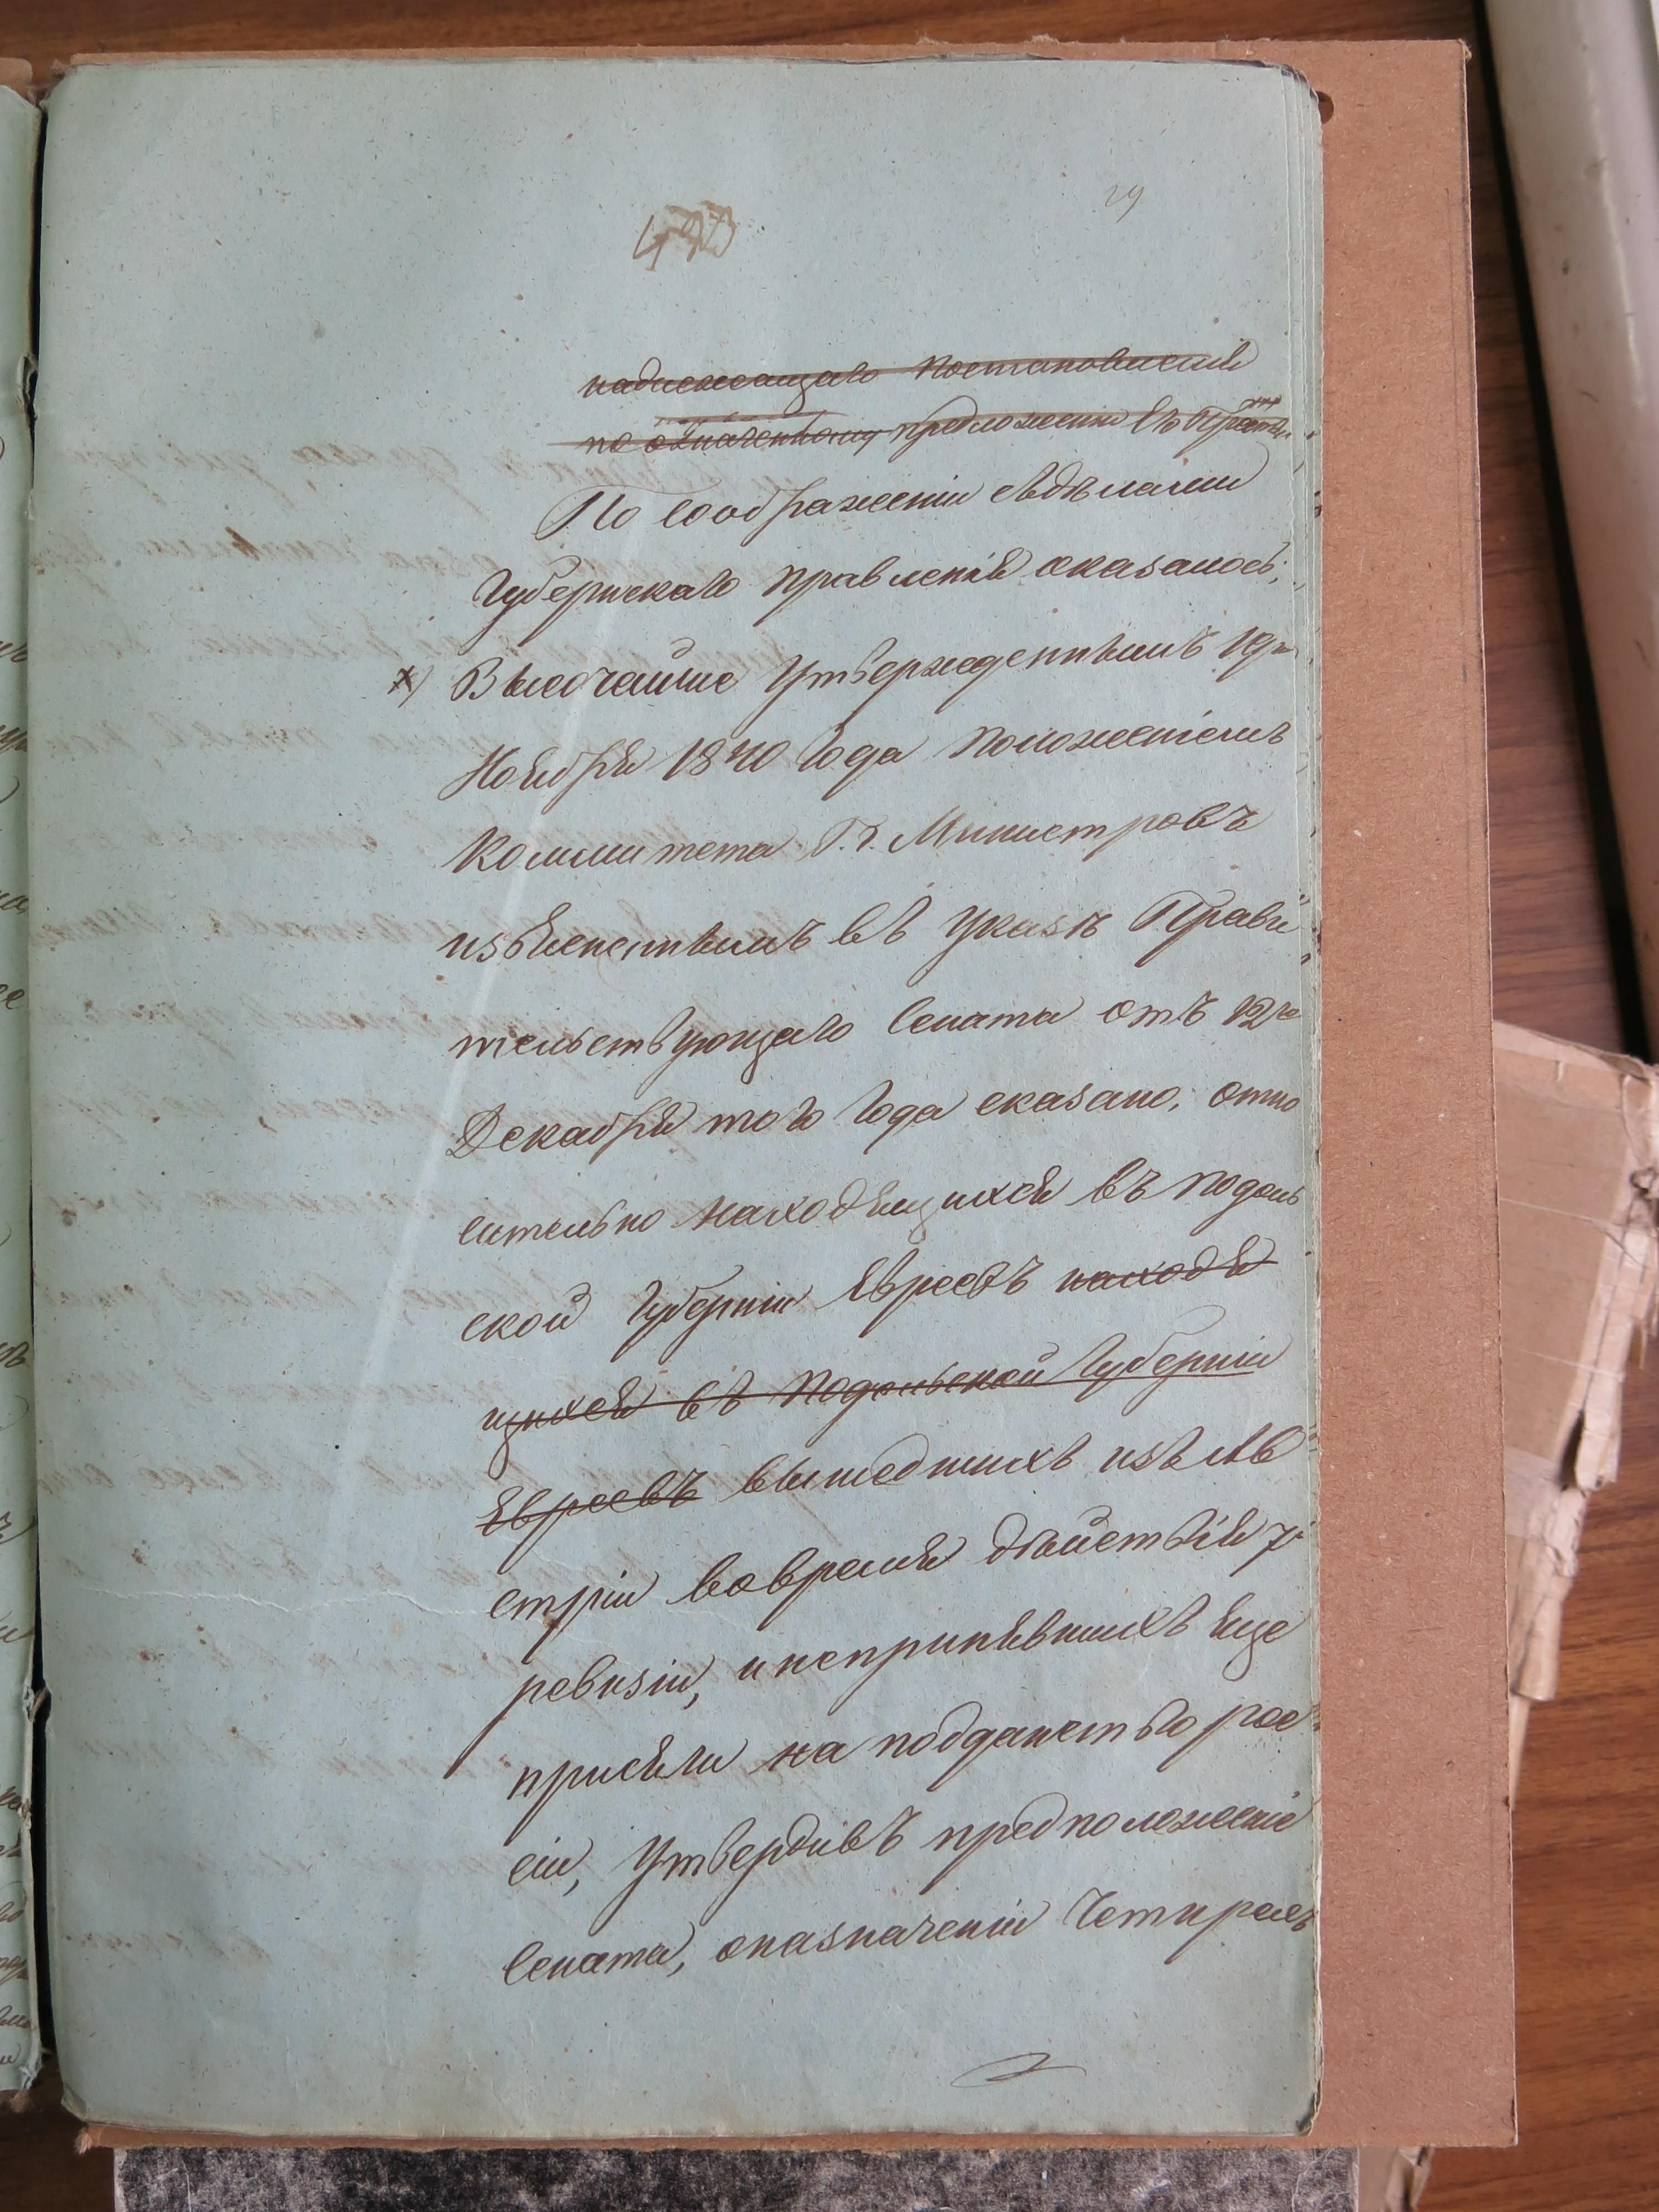 29
надлежащаго постановленія
по означенному предложенію Его
По соображеніи съ дѣлами
Губернскаго правленія оказалось;
х) Высочайше Утвержденнымъ 19го
Ноября 1840 Года положеніемъ
Коммитета Г.г. Министровъ
изъясненнымъ въ Указѣ Прави
тельствующаго Сената отъ 12го
Декабря того Года сказано: отно
сительно находящихся въ подоль
ской Губерніи Евреевъ находя
щихся въ Подольской Губерніи
Евреевъ вышедшихъ изъ Ав
стріи вовремя дѣйствія 7й
ревизіи, и непринявшихъ еще
присяги на подданство рос
сіи, Утвердивъ предположеніе
Сената, оназначеніи Четирехъ